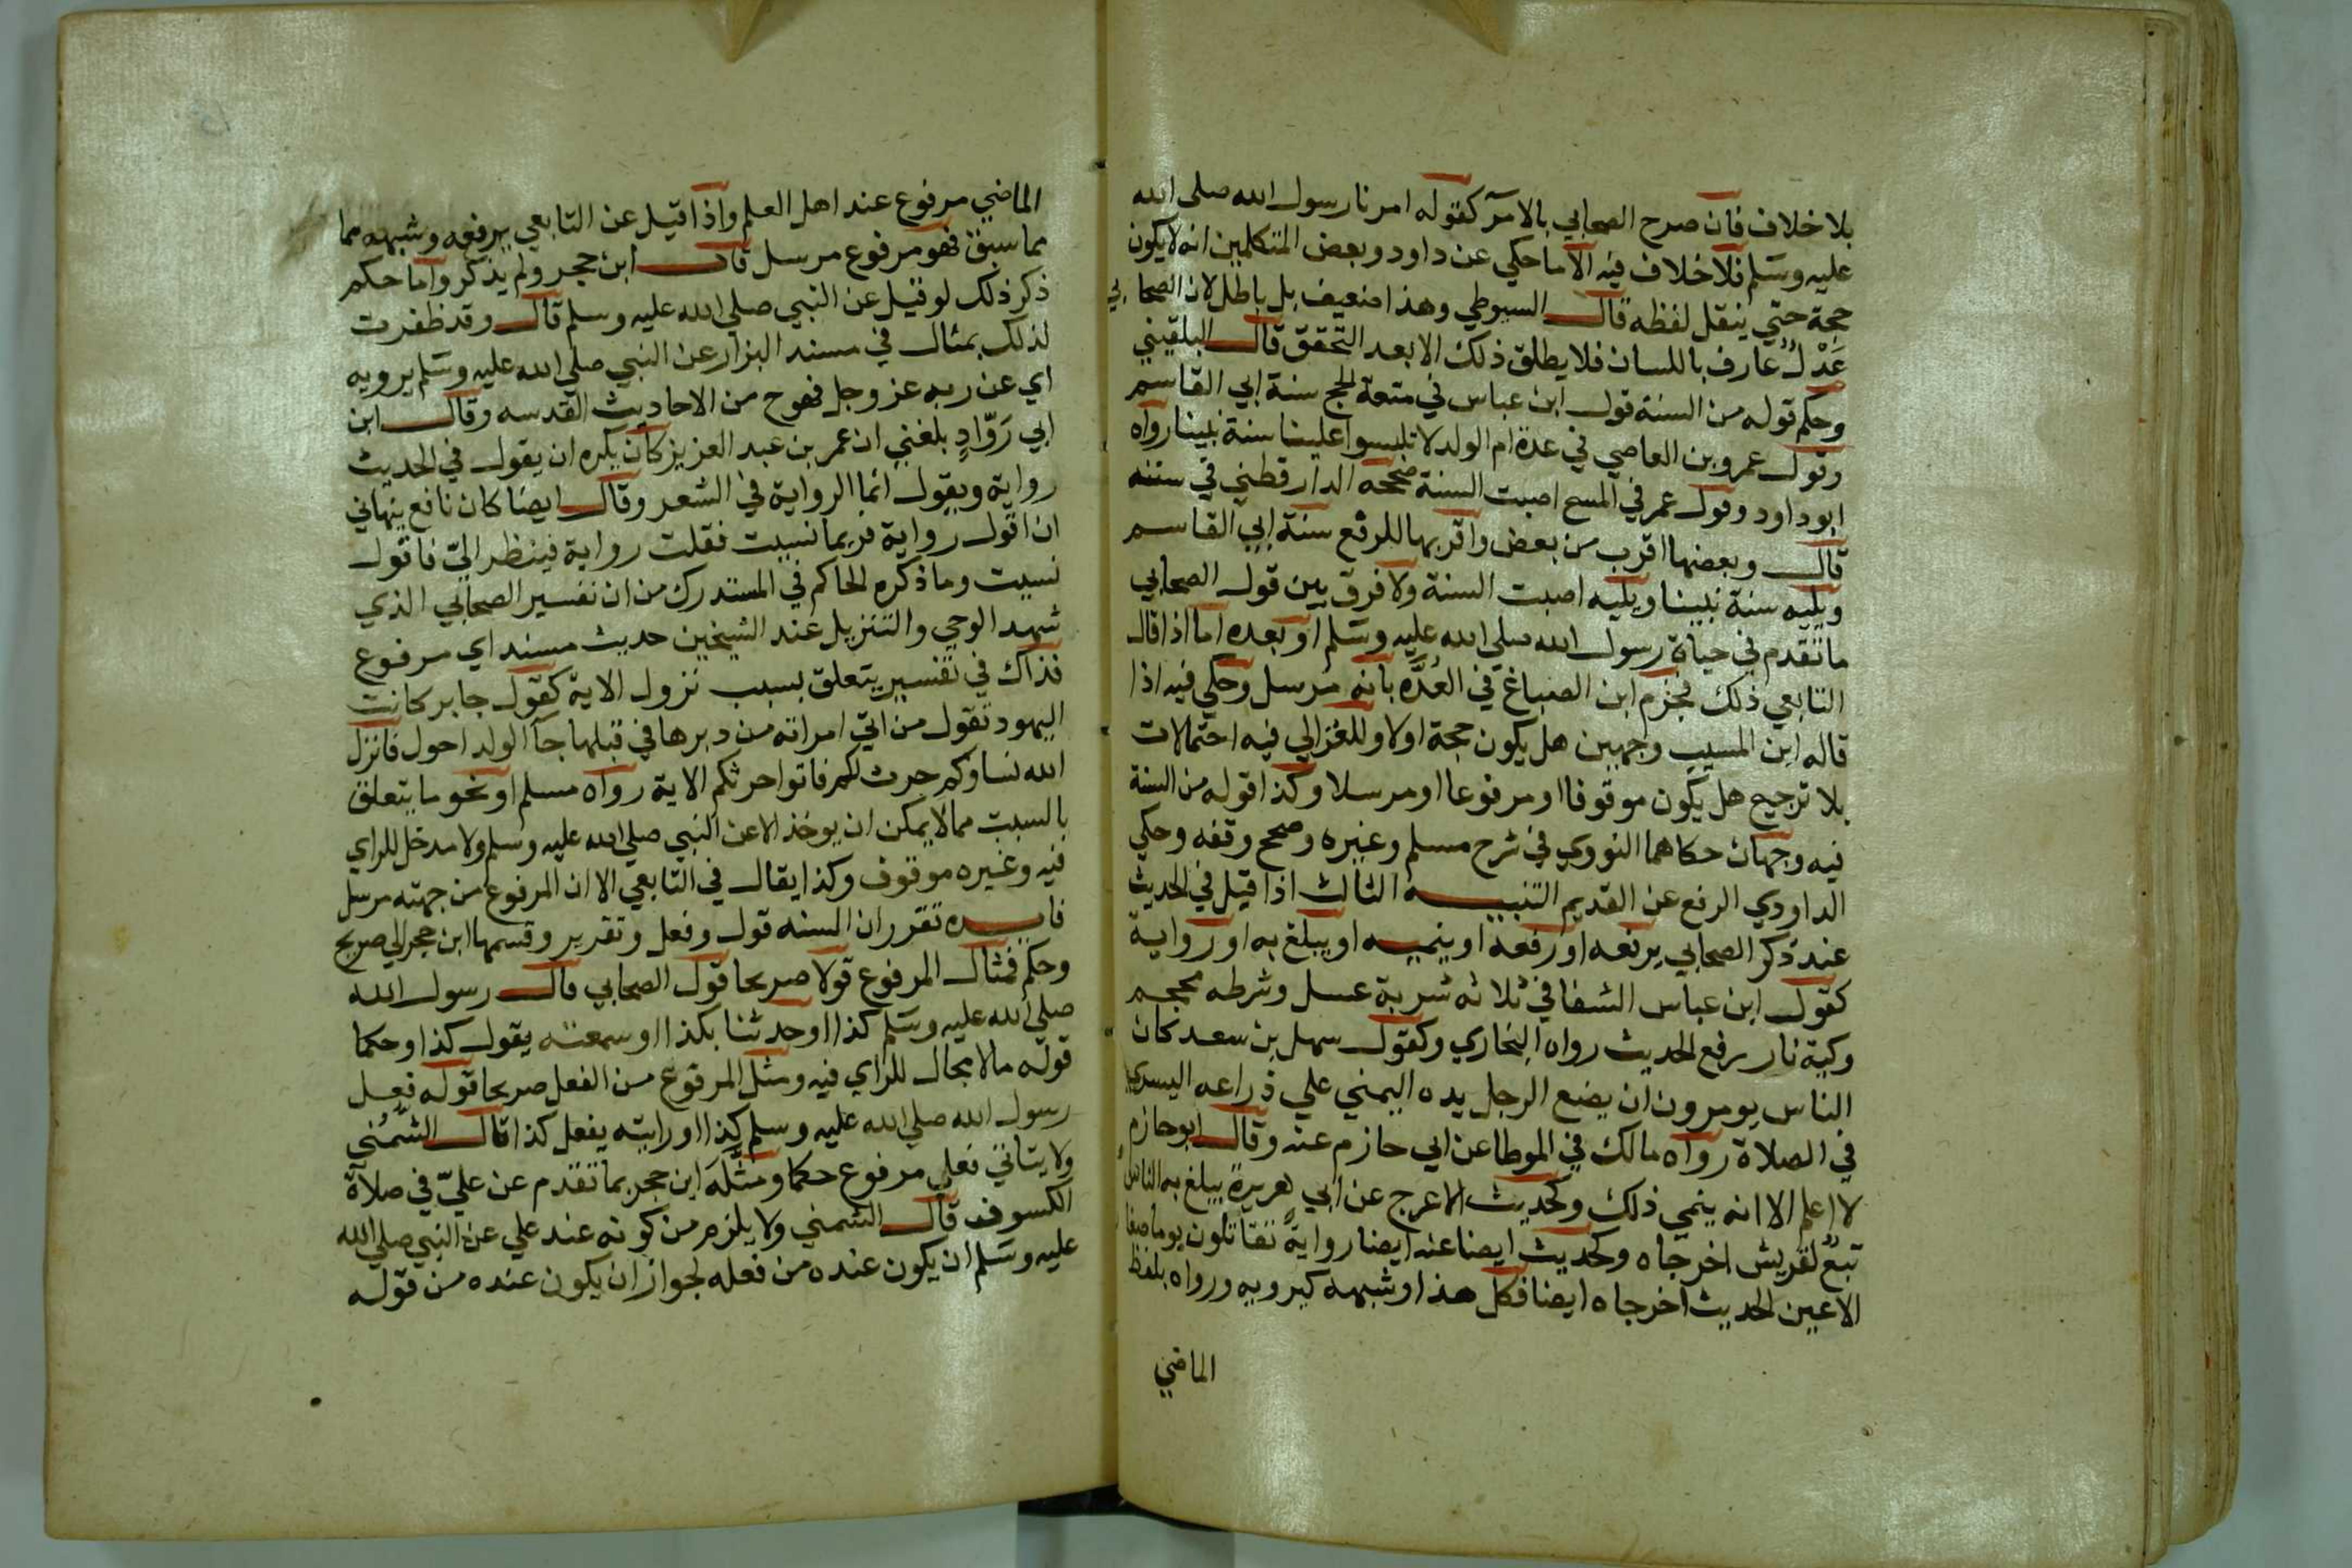 بلا خلاف فان صرح الصحابي بالامر كقوله امرنا رسول الله صلى الله
عليه وسلم فلا خلاف فيه الا ما حكي عن داود وبعض المتكلمين انه لا يكون
حجة حتي ينقل لفظه قال السيوطي وهذا ضعيف بل باطل لان الصحابي
عَدْلٌ عارف باللسان فلا يطلق ذلك الا بعد التحقق قال البلقيني
وحكم قوله من السنة قول ابن عباس في متعة الحج سنة ابي القاسم
وقول عمرو بن العاصي في عدة ام الولد لا تلبسوا علينا سنة نبينا رواه
ابو داود وقول عمر في المسح اصبت السنة صححه الدارقطني في سننه
قال وبعضها اقرب من بعض واقربها للرفع سنة ابي القاسم
ويليه سنة نبينا ويليه اصبت السنة ولا فرق بين قول الصحابي
ما تقدم في حياة رسول الله صلي الله عليه وسلم او بعده اما اذا قال
التابعي ذلك فجزم ابن الصباغ في العُدَّه بانه مرسل وحكي فيه اذا
قاله ابن المسيب وجهين هل يكون حجة اولا وللغزالي فيه احتمالات
بلا ترجيح هل يكون موقوفا او مرفوعا او مرسلا وكذا قوله من السنة
فيه وجهان حكاهما النووي في شرح مسلم وغيره وصحح وقفه وحكي
الداودي الرفع عن القديم التنبيه الثالث اذا قيل في الحديث
عند ذكر الصحابي يرفعه او رفعه او ينميه او يبلغ به او رواية
كقول ابن عباس الشفا في ثلاثه شربة عسل وشرطه محجم
وكية نار رفع الحديث رواه البخاري وكقول سهل بن سعد كان
الناس يومرون ان يضع الرجل يده اليمني علي ذراعه اليسري
في الصلاة رواه مالك في الموطا عن ابي حازم عنه وقال ابو حازم
لا اعلم الا انه ينمي ذلك وكحديث الاعرج عن ابي هريرة يبلغ به الناس
تبعٌ لقريش اخرجاه وكحديث ايضا عنه ايضا رواية تقاتلون يوما صغا
الاعين الحديث اخرجاه ايضا فكل هذا وشبهه كيرويه ورواه بلفظ
الماضي
الماضي مرفوع عند اهل العلم واذا قيل عن التابعي يرفعه وشبهه مما
مما سبق فهو مرفوع مرسل قال ابن حجر ولم يذكروا ما حكم
ذكر ذلك لو قيل عن النبي صلي الله عليه وسلم قال وقد ظفرت
لذلك بمثال في مسند البزار عن النبي صلي الله عليه وسلم يرويه
اي عن ربه عز وجل فهو ح من الاحاديث القدسه وقال ابن
ابي رَوّادٍ بلغني ان عمر بن عبد العزيز كان يكره ان يقول في الحديث
رواية ويقول انما الرواية في الشعر وقال ايضا كان نافع ينهاني
ان اقول رواية فربما نسيت فقلت رواية فينظر اليّ فاقول
نسيت وما ذكره الحاكم في المستدرك من ان تفسير الصحابي الذي
شهد الوحي والتنزيل عند الشيخين حديث مسند اي مرفوع
فذاك في تفسير يتعلق بسبب نزول الاية كقول جابر كانت
اليهود تقول من اتي امراته من دبرها في قبلها جآ الولد احول فانزل
الله نساوكم حرث لكم فاتوا حرثكم الاية رواه مسلم او نحو ما يتعلق
بالسبب مما لا يمكن ان يوخذ الا عن النبي صلي الله عليه وسلم ولا مدخل للراي
فيه وغيره موقوف وكذا يقال في التابعي الا ان المرفوع من جهته مرسل
فايده تقرر ان السنه قول وفعل وتقرير وقسمها ابن حجر الي صريح
وحكم فمثال المرفوع قولا صريحا قول الصحابي قال رسول الله
صلي الله عليه وسلم كذا او حدثنا بكذا او سمعته يقول كذا وحكما
قوله ما لا مجال للراي فيه ومثل المرفوع من الفعل صريحا قوله فعل
رسول الله صلي الله عليه وسلم كذا او رايته يفعل كذا قال الشُمُني
ولا يتاتي فعلي مرفوع حكما ومثَّلَه ابن حجر بما تقدم عن عليّ في صلاة
الكسوف قال الشمني ولا يلزم من كونه عند علي عن النبي صلي الله
عليه وسلم ان يكون عنده من فعله لجواز ان يكون عنده من قوله